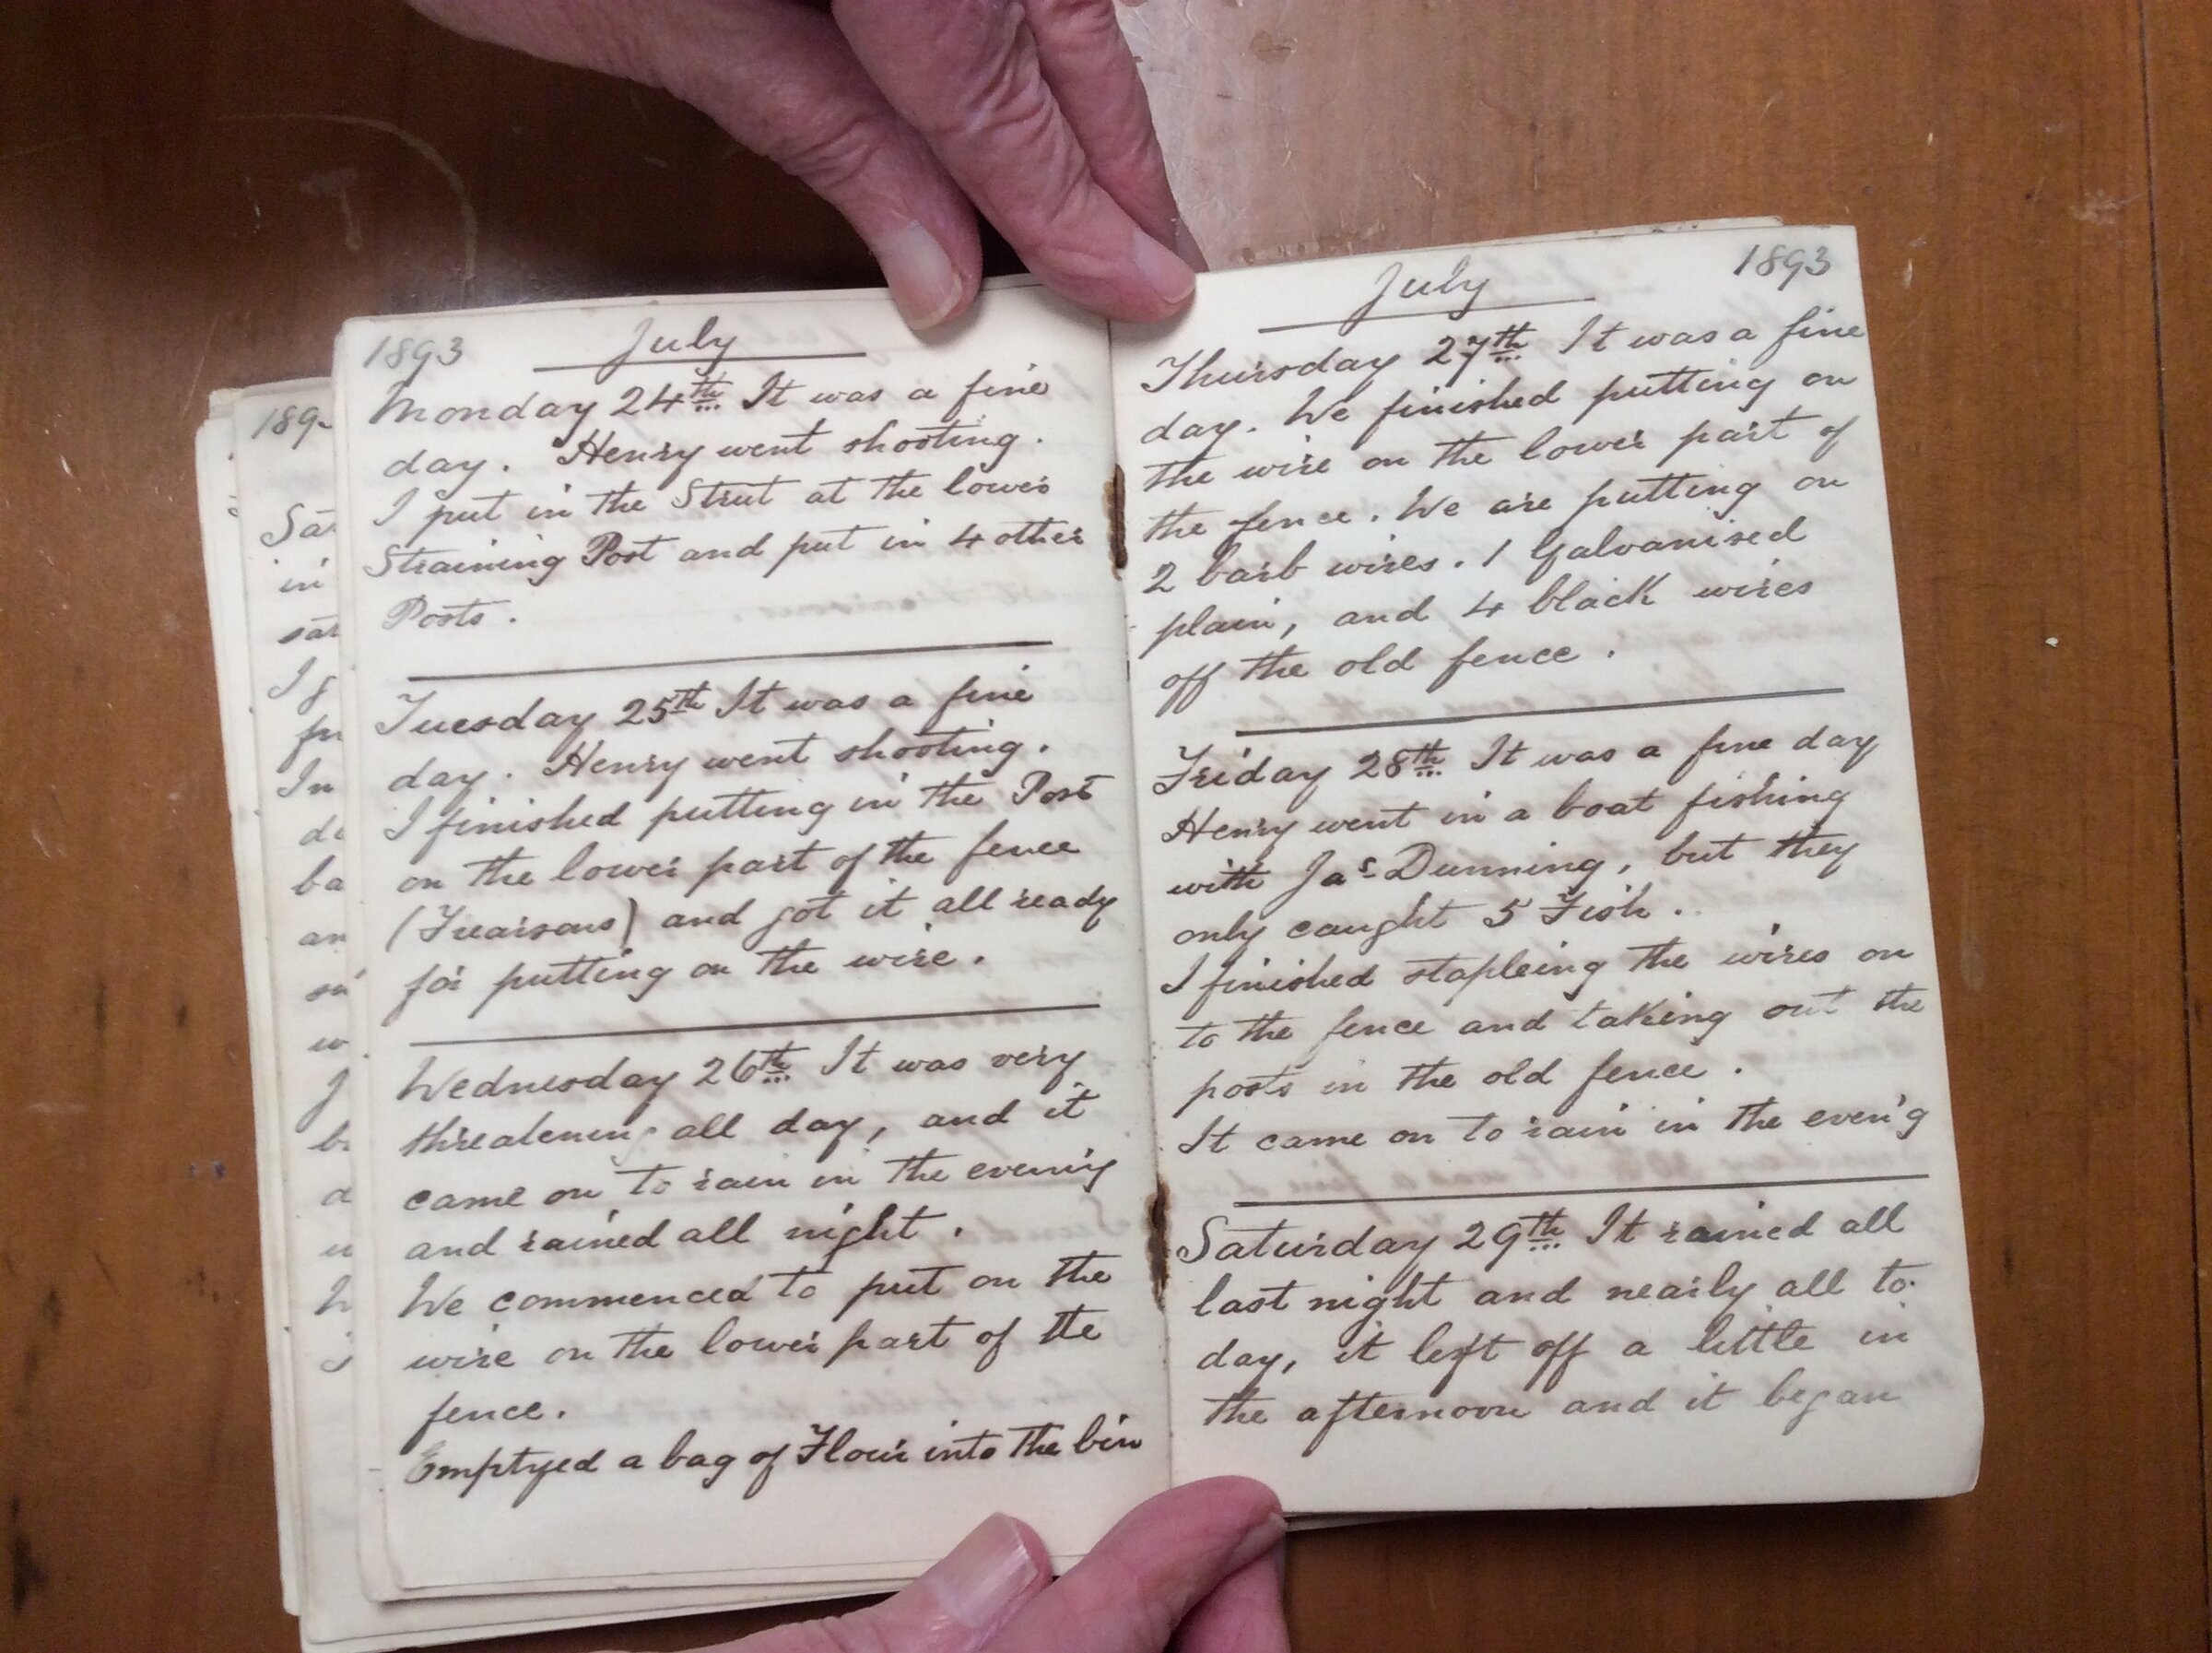 1893
July
Monday 24th It was a fine
day. Henry went shooting.
I put in the Strut at the lower
Straining Post and put in 4 other
Posts.
Tuesday 25th It was a fine
day. Henry went shooting.
I finished putting in the Post
on the lower part of the fence
(Frearsons) and got it all ready
for putting on the wire.
Wednesday 26th It was very
threatening all day, and it
came on to rain in the evening
and rained all night.
We commenced to put on the
wire on the lower part of the
fence.
Emptyed a bag of Flour into the bin
July
1893
Thursday 27th It was a fine
day. We finished putting on
the wire on the lower part of
the fence. We are putting on
2 barb wires. 1 Galvanised
plain, and 4 black wires
off the old fence.
Friday 28th It was a fine day
Henry went in a boat fishing
with Jas Dunning, but they
only caught 5 Fish.
I finished stapleing the wires on
to the fence and taking out the
posts in the old fence.
It came on to rain in the even'g
Saturday 29th It rained all
last night and nearly all to-
day, it left off a little in
the afternoon and it began
189
Sat
in
sat
I g
pu
In
ba
an
w